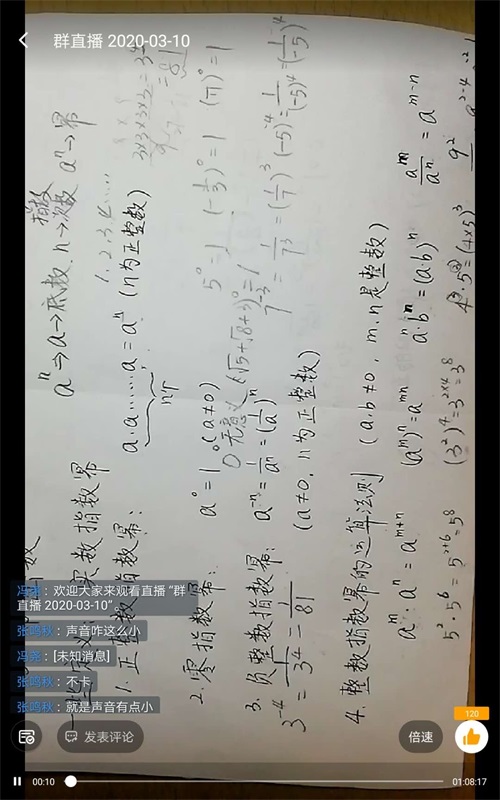 群直播 2020-03-10
指数
aⁿ ⇒ a→底数. n→次数 aⁿ→幂
一. 定义: 实数指数幂
1. 正整数指数幂:
1, 2, 3, 4, ……
a·a……a = aⁿ (n为正整数)
n个
3×3×3×3 = 3⁴
= 81
2. 零指数幂:
a⁰ = 1 (a≠0)
5⁰ = 1 (-1/3)⁰ = 1 (π)⁰ = 1
0⁰无意义 (√5+√8+3)⁰ = 1
3. 负整数指数幂:
a⁻ⁿ = 1/aⁿ = (1/a)ⁿ
(a≠0, n为正整数)
7⁻³ = 1/7³ = (1/7)³ (-5)⁻⁴ = 1/(-5)⁴ = (1/-5)⁴
3⁻⁴ = 1/3⁴ = 1/81
4. 整数指数幂的运算法则 (a·b≠0, m·n是整数)
aᵐ·aⁿ = aᵐ⁺ⁿ (aᵐ)ⁿ = aᵐⁿ aⁿ·bⁿ = (a·b)ⁿ aᵐ/aⁿ = aᵐ⁻ⁿ
5²·5⁶ = 5²⁺⁶ = 5⁸ (3²)⁴ = 3²ˣ⁴ = 3⁸ 4³·5³ = (4×5)³
欢迎大家来观看直播 “群直播 2020-03-10”。
张鸣秋：声音咋这么小
冯尧：[未知消息]
张鸣秋：不卡
张鸣秋：就是声音有点小
发表评论
倍速
120
00:10
01:08:17